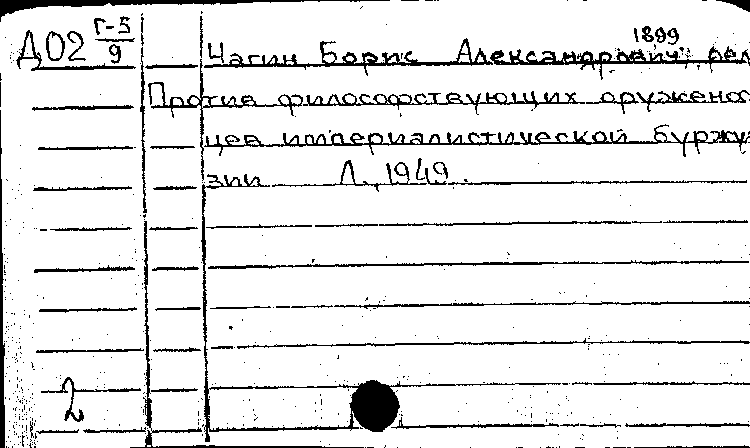 Д02 Г-5/9
1899
Чагин Борис Александрович, ред
Против философствующих оруженос
цев империалистической буржуа
зии Л., 1949.
2